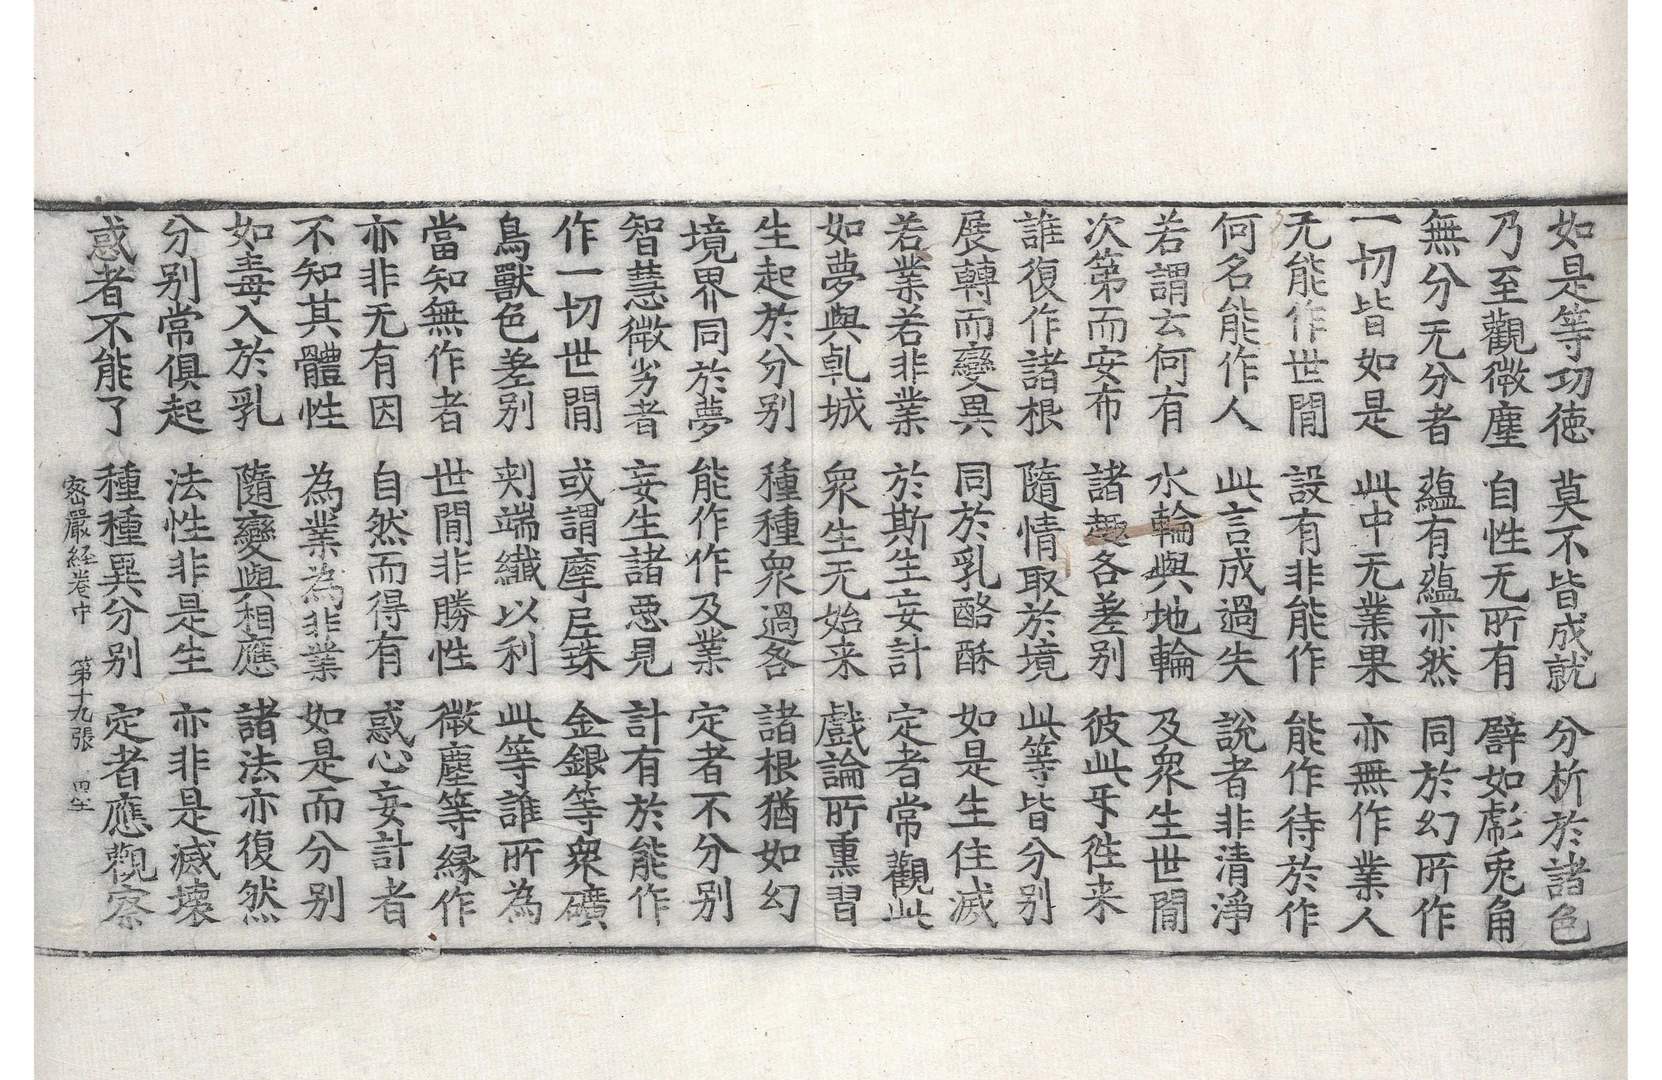 如是等功徳　莫不皆成就　分析於諸色
乃至觀微塵　自性无所有　譬如彪兎角
無分无分者　蘊有蘊亦然　同於幻所作
一切皆如是　此中无業果　亦無作業人
无能作世間　設有非能作　能作待於作
何名能作人　此言成過失　說者非清淨
若謂云何有　水輪與地輪　及衆生世間
次第而安布　諸趣各差别　彼此㸦徃来
誰復作諸根　隨情取於境　此等皆分别
展轉而變異　同於乳酪酥　如是生住滅
若業若非業　於斯生妄計　定者常觀此
如夢與乹城　衆生无始来　戲論所熏習
生起於分别　種種衆過咎　諸根猶如幻
境界同於夢　能作作及業　定者不分别
智慧微劣者　妄生諸惡見　計有於能作
作一切世間　或謂摩尼珠　金銀等衆礦
鳥獸色差别　刺端纖以利　此等誰所為
當知無作者　世間非勝性　微塵等緣作
亦非无有因　自然而得有　惑心妄計者
不知其體性　為業為非業　如是而分别
如毒入於乳　隨變與相應　諸法亦復然
分别常俱起　法性非是生　亦非是滅壞
惑者不能了　種種異分别　定者應觀察
密嚴経卷中　第十九張